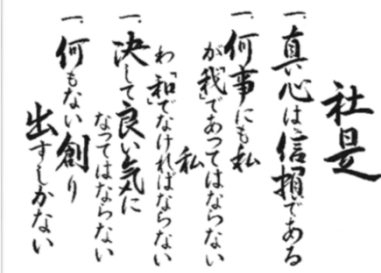 社是
一、真心は信損である
一、何事にも私
が「我」であってはならない
私
わ「和」でなければならない
一、決して良い気に
なってはならない
一、何もない創り
出すしかない